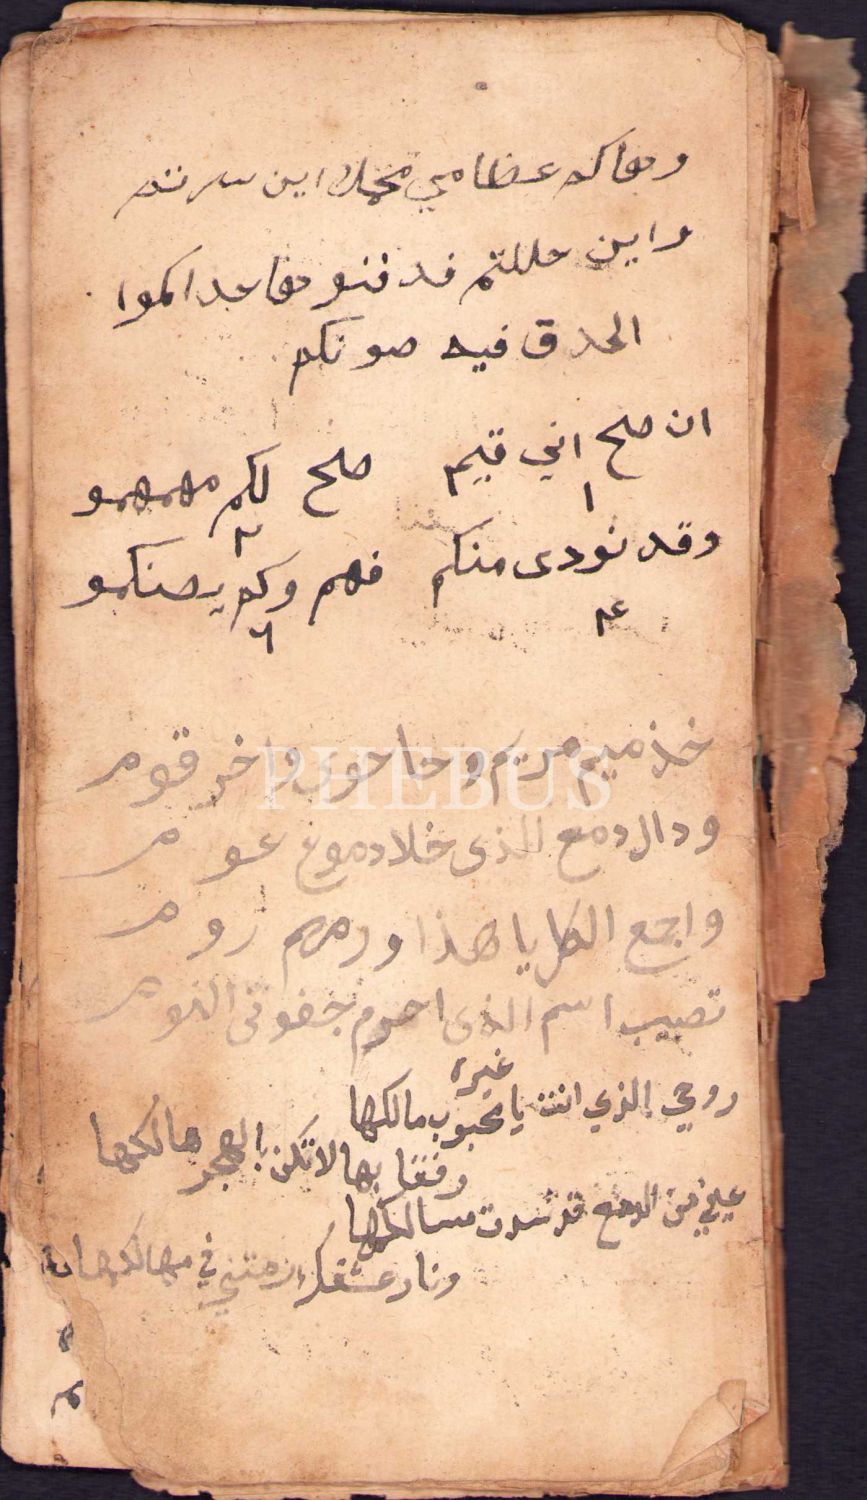 وهاكم عظامي محملا اين سرتم
واين حللتم فدفنوها حداكموا
الحدق فيه صونكم
ان صلح اني قيم صلح لكم مهمهمو
١
٢
وقد نودى منكم فهم وكم يصنكمو
٤
٦
خذ ميم مريم وحا حوى واخر قوم
ودال دمع الذى خلا دموع عوم
واجع الكل يا هذا ورمهم روم
تصيب اسم الذى احرم جفونى النوم
غيره
روحي الذي انت يا محبوب مالكها
رفقا بها لا تكن بالهجر هالكها
عيني من الدمع قد سدت مسالكها
ونار عشقك رمتني في مهالكها
PHEBUS